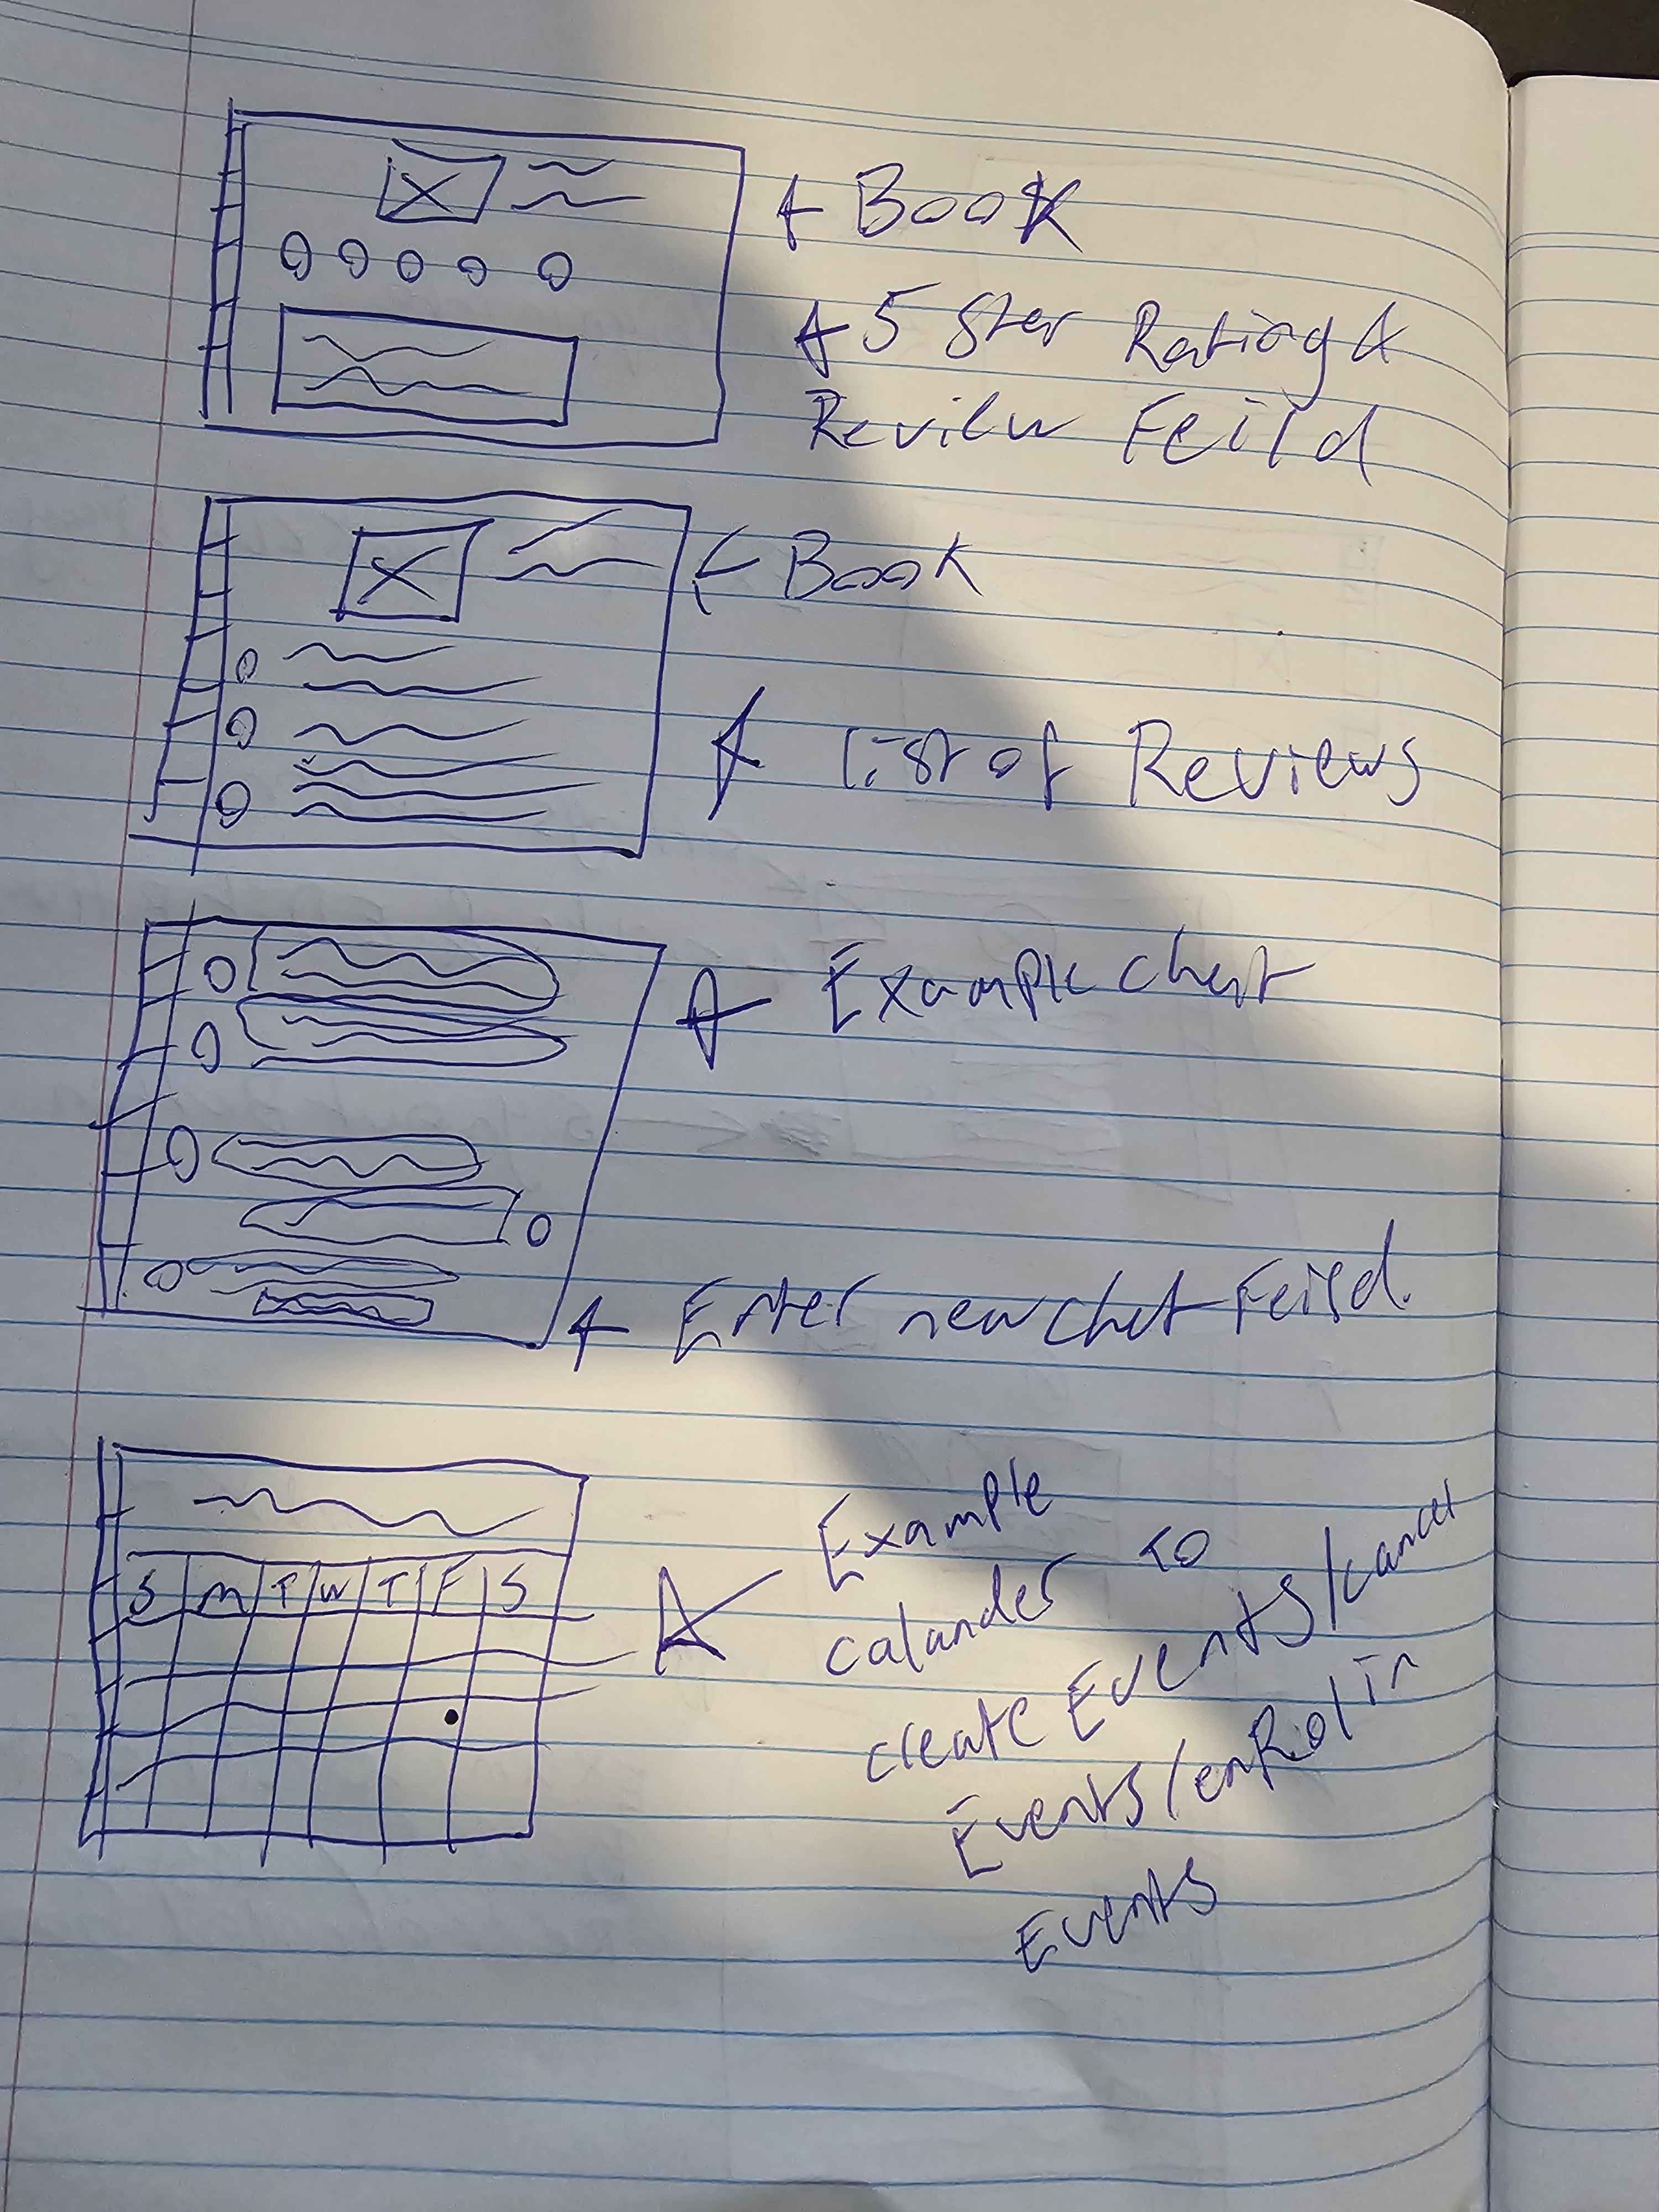 Book
5 Ster Rating &
Review Feild
Book
list of Reviews
Example chat
Enter new chat Feild.
S M T W T F S
Example
calander to
create Events/cancel
Events/enRol in
Events